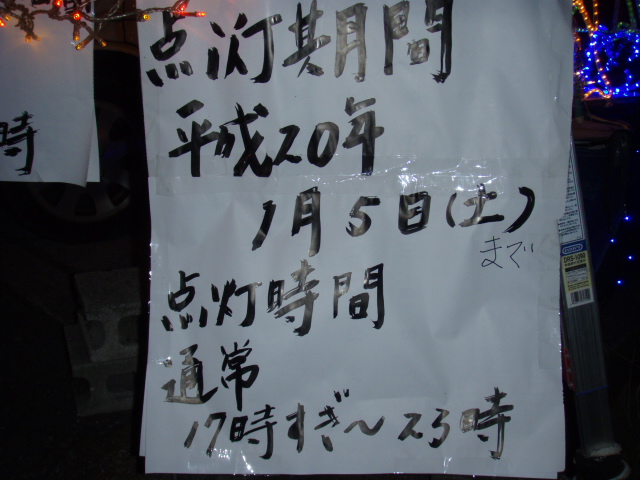 点灯期間
平成20年
1月5日(土)
まで
点灯時間
通常
17時すぎ~23時
時